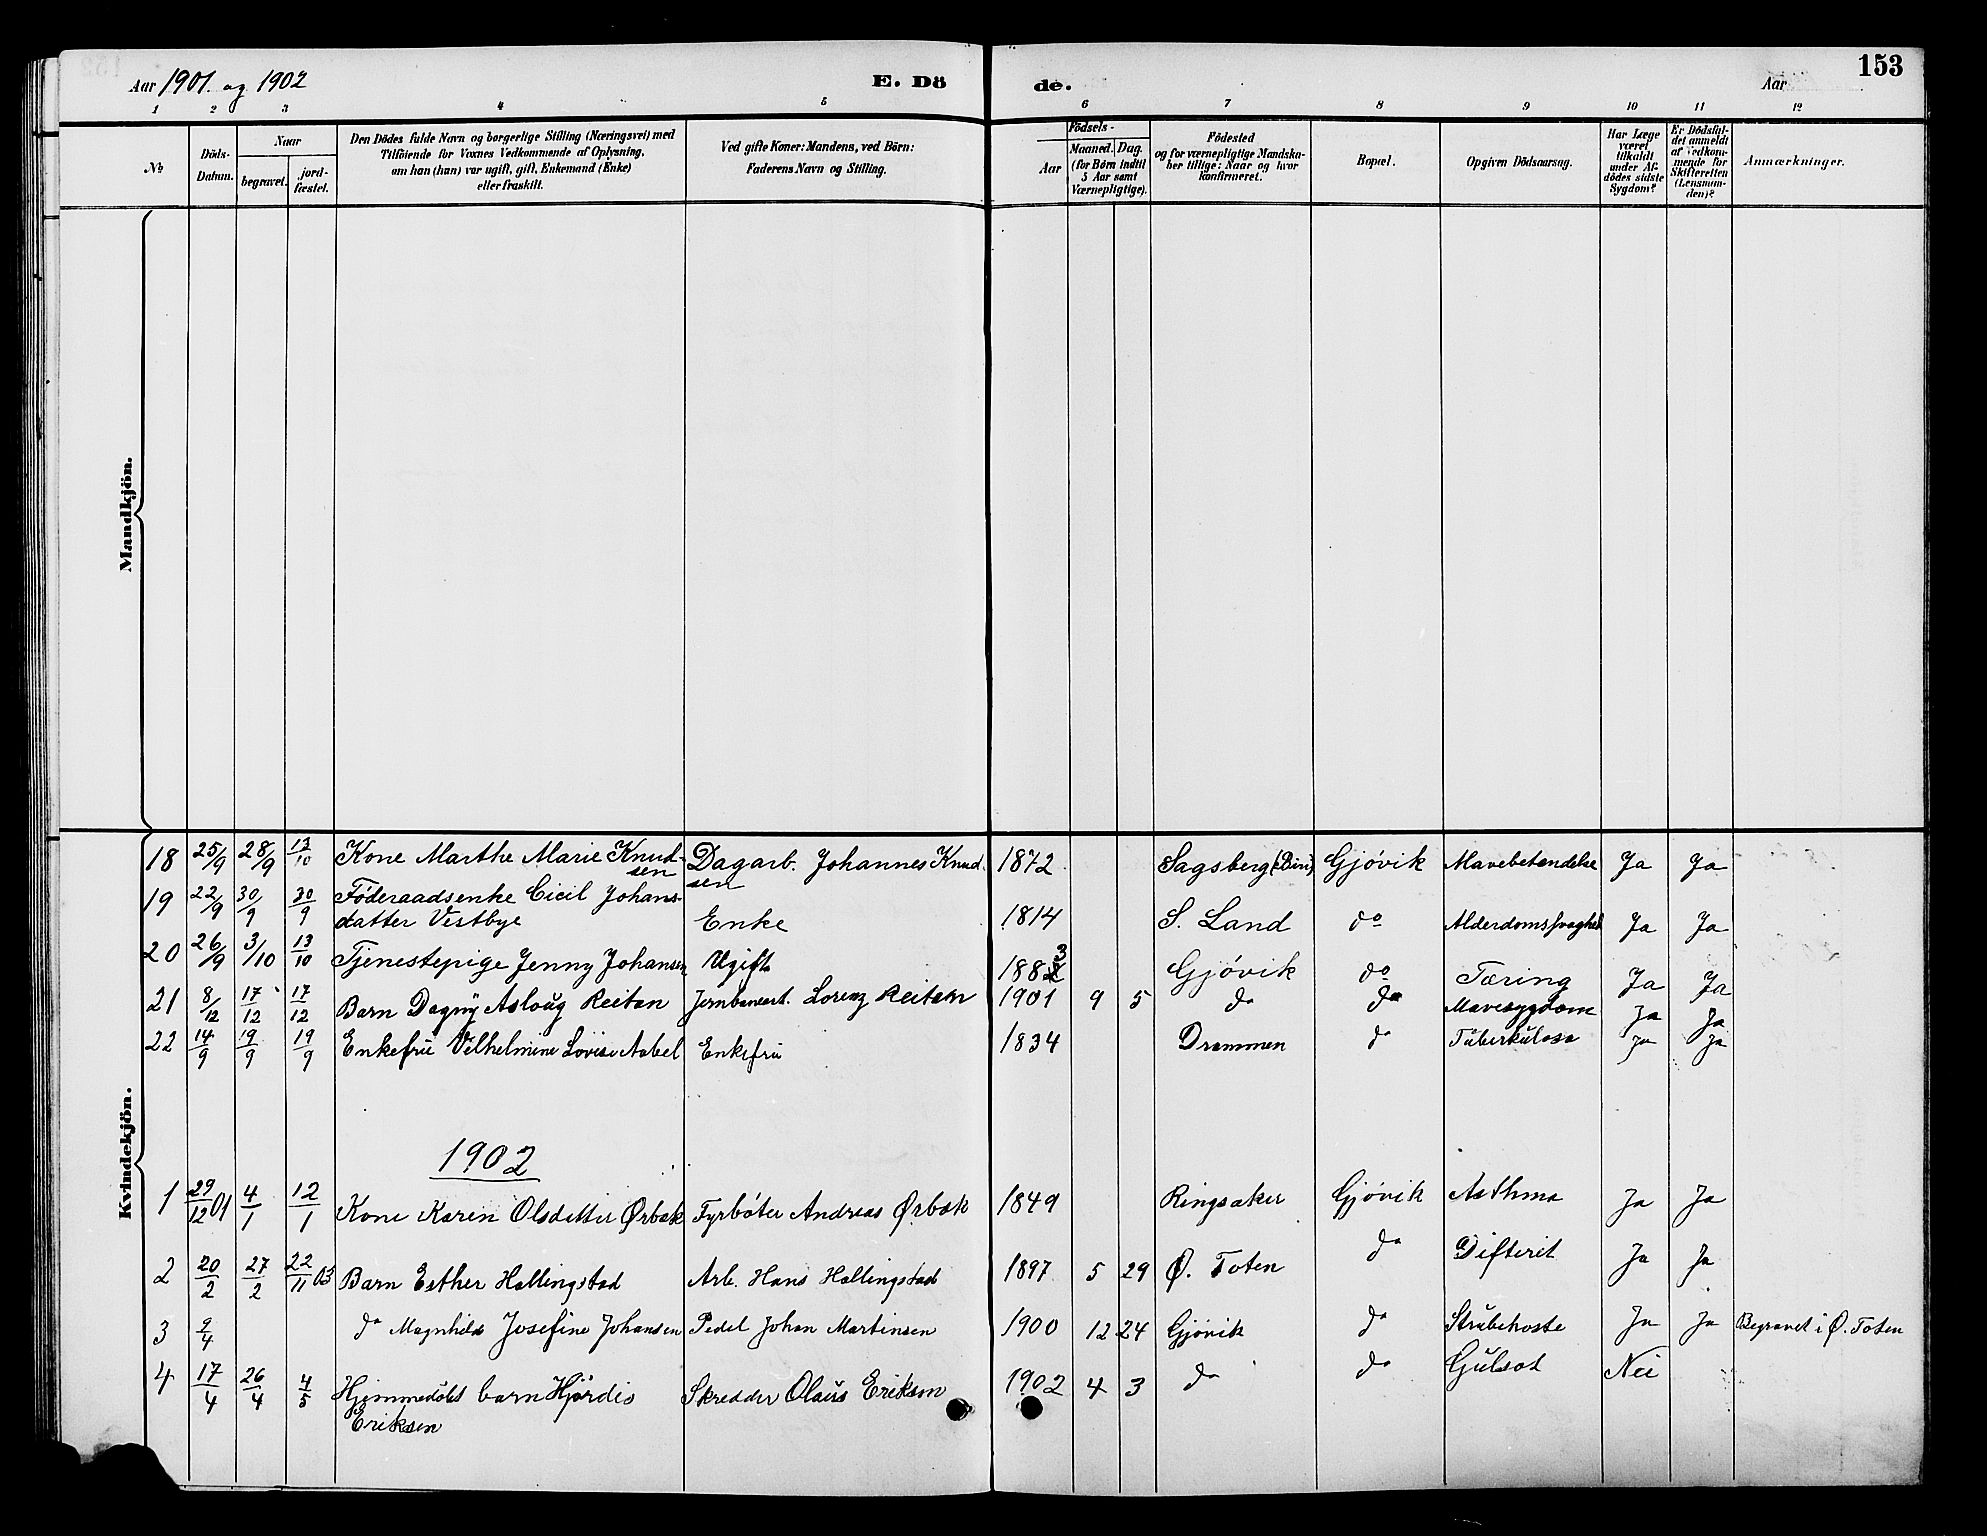 Aar 1901 og 1902
E. Dö
de.
Aar
153
1 2 3 4 5 6 7 8 9 10 11 12
No
Döds-
Datum.
Naar
begravet.
jord-
fæstet.
Den Dödes fulde Navn og borgerlige Stilling (Næringsvei) med
Tilföiende for Voxnes Vedkommende af Oplysning,
om han (hun) var ugift, gift, Enkemand (Enke)
eller fraskilt.
Ved gifte Koner: Mandens, ved Börn:
Faderens Navn og Stilling.
Födsels-
Aar
Maaned. Dag.
(for Börn indtil
5 Aar samt
Værnepligtige).
Födested
og for værnepligtige Mandska-
ber tillige: Naar og hvor
konfirmeret.
Bopæl.
Opgiven Dödsaarsag.
Har Læge
været
tilkaldt
under Af-
dödes sidste
Sygdom?
Er Dödsfal-
det anmeldt
af Vedkom-
mende for
Skifteretten
(Lensman-
den)?
Anmærkninger.
Mandkjön.
Kvindekjön.
18 25/9 28/9 13/10 Kone Marthe Marie Knud- Dagarb. Johannes Knud- 1872 Sagsberg (Biri) Gjövik Mavebetendelse Ja Ja
sen sen
19 22/9 30/9 30/9 Föderaadsenke Cicil Johans-
datter Vestbye Enke 1814 S. Land do Alderdomssvaghed Ja Ja
20 26/9 3/10 13/10 Tjenestepige Jenny Johansen Ugift 1883 Gjövik do Tæring Ja Ja
21 8/12 17/12 17/12 Barn Dagny Asloug Reitan Jernbanearb. Lorenz Reitan 1901 9 5 do do Mavesygdom Ja Ja
22 14/9 19/9 19/9 Enkefru Vilhelmine Lovise Aabel Enkefru 1834 Drammen do Tuberkulose Ja Ja
1902
1 29/12 01 4/1 12/1 Kone Karen Olsdatter Ørbæk Fyrböter Andreas Ørbæk 1849 Ringsaker Gjövik Asthma Ja Ja
2 20/2 27/2 22/11 03 Barn Esther Hallingstad Arb. Hans Hallingstad 1897 5 29 Ø. Toten do Difterit Ja Ja
3 9/4 do Magnhild Josefine Johansen Pedel Johan Martinsen 1900 12 24 Gjövik do Strubehoste Ja Ja Begravet i Ø. Toten
4 17/4 26/4 4/5 Hjemmedöbt barn Hjördis Skredder Olaus Eriksen 1902 4 3 do do Gulsot Nei
Eriksen